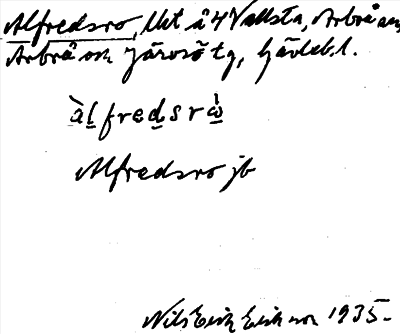 Alfredsro, lht å 4 Vallsta, Arbrå sn,
Arbrå och Järvsö tg, Gävleb. l.
àl̲fred̲srẁ̲
Alfredsro jb
Nils Erik Eriksson 1935.